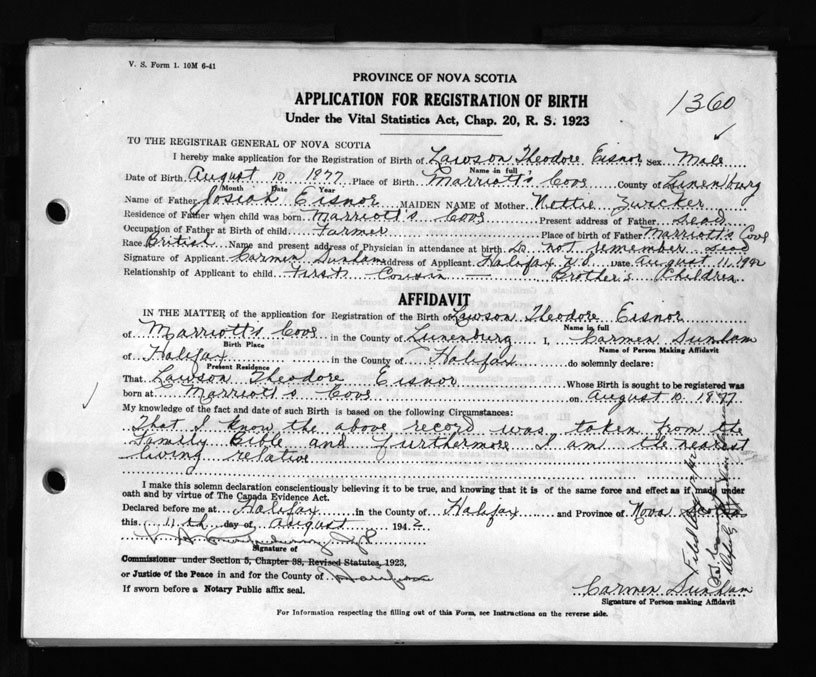 V. S. Form 1. 10M 6-41
PROVINCE OF NOVA SCOTIA
APPLICATION FOR REGISTRATION OF BIRTH
1360
Under the Vital Statistics Act, Chap. 20, R. S. 1923
TO THE REGISTRAR GENERAL OF NOVA SCOTIA
I hereby make application for the Registration of Birth of Lawson Theodore Eisnor Sex Male
Name in full
Date of Birth August 10 1877 Place of Birth Marriott's Cove County of Lunenburg
Month Date Year
Name of Father Josiah Eisnor MAIDEN NAME of Mother Nettie Zwicker
Residence of Father when child was born Marriott's Cove Present address of Father Dead
Occupation of Father at Birth of child Farmer Place of birth of Father Marriott's Cove
Race British Name and present address of Physician in attendance at birth Do not remember dead
Signature of Applicant Carmen Dunham Address of Applicant Halifax N.S. Date August 11, 1942
Relationship of Applicant to child First Cousin — Brother's Children
AFFIDAVIT
IN THE MATTER of the application for Registration of the Birth of Lawson Theodore Eisnor
Name in full
of Marriott's Cove in the County of Lunenburg I, Carmen Dunham
Birth Place Name of Person Making Affidavit
of Halifax in the County of Halifax do solemnly declare:
Present Residence
That Lawson Theodore Eisnor Whose Birth is sought to be registered was
born at Marriott's Cove on August 10 1877
My knowledge of the fact and date of such Birth is based on the following Circumstances:
That I know the above record was taken from the
Family Bible and furthermore I am the nearest
living relative
I make this solemn declaration conscientiously believing it to be true, and knowing that it is of the same force and effect as if made under
oath and by virtue of The Canada Evidence Act.
Declared before me at Halifax in the County of Halifax and Province of Nova Scotia
this 11th day of August 1942
Signature of
Commissioner under Section 5, Chapter 38, Revised Statutes, 1923,
or Justice of the Peace in and for the County of Halifax
If sworn before a Notary Public affix seal.
Carmen Dunham
Signature of Person making Affidavit
For Information respecting the filling out of this Form, see Instructions on the reverse side.